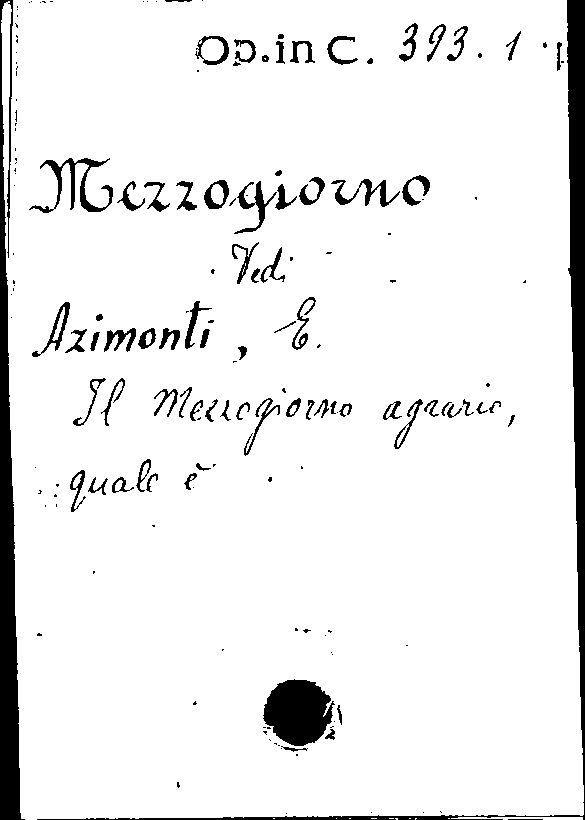 Op. in C. 393. 1
Mezzogiorno
Vedi
Azimonti, E.
Il Mezzogiorno agrario,
quale è